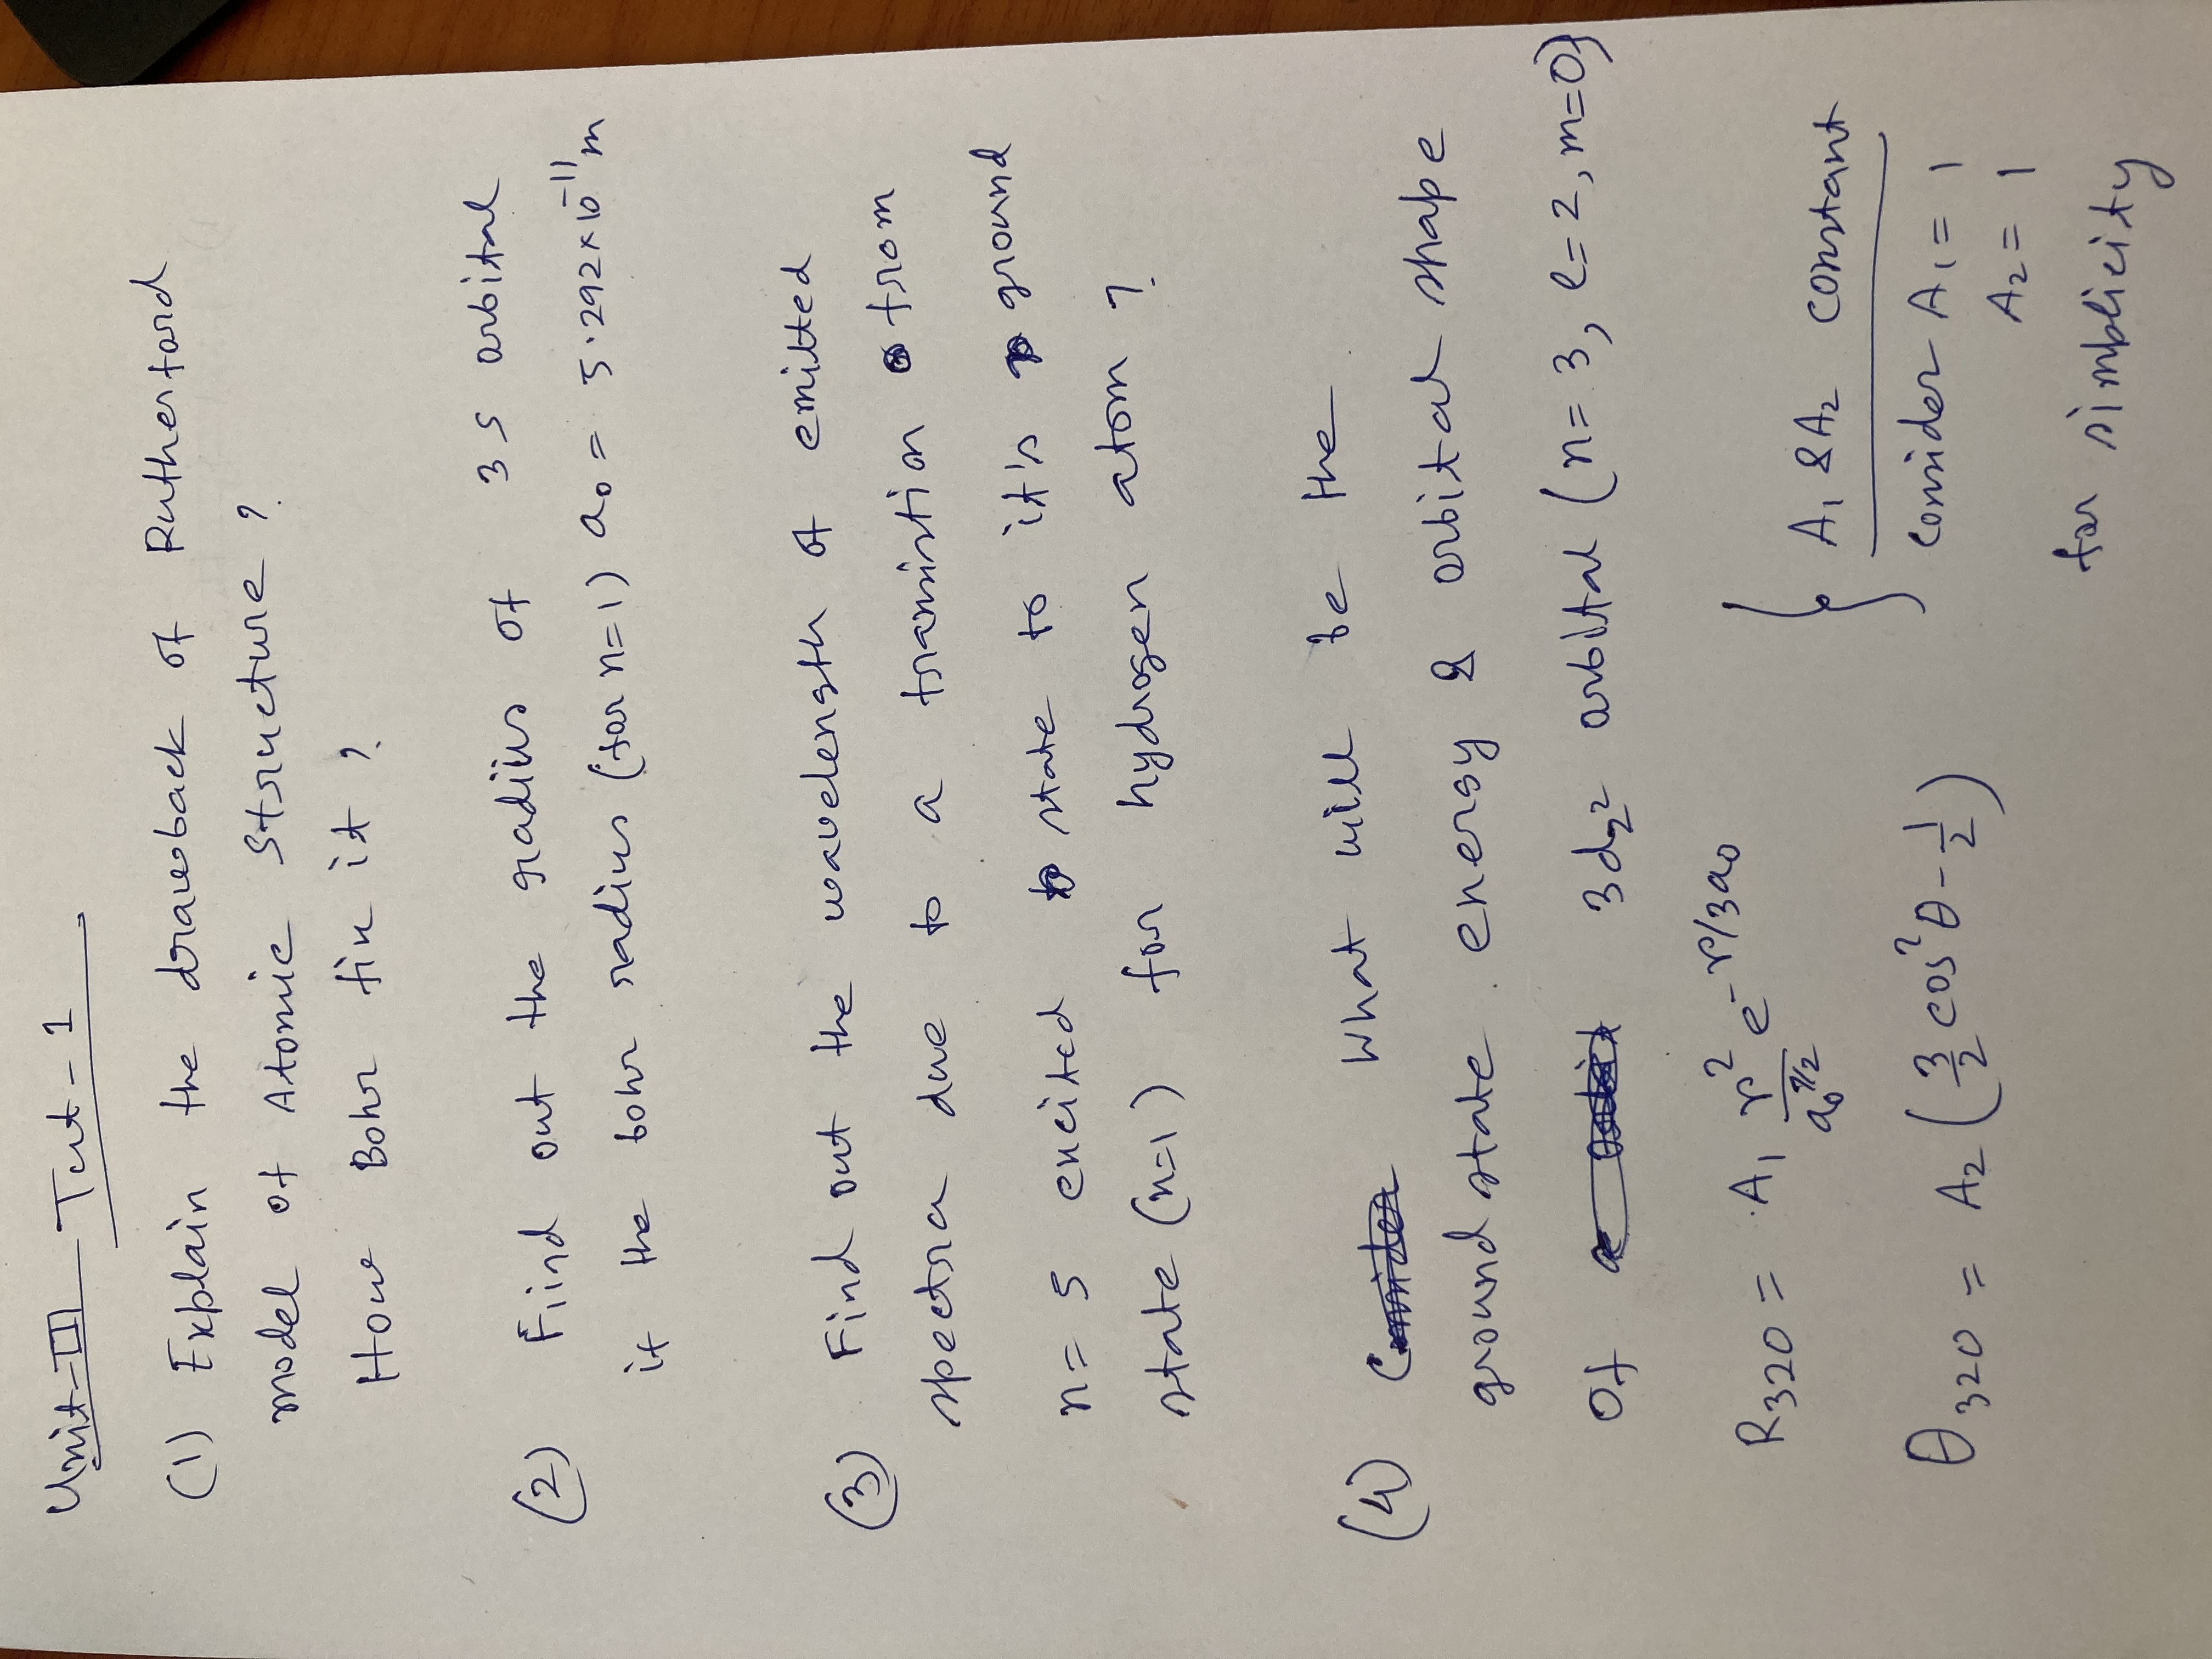 Unit-III Tut-1
(1) Explain the drawback of Rutherford
model of Atomic Structure ?
How Bohr fix it ?
(2) Fiind out the radius of 3s orbital
if the bohr radius (for n=1) a₀ = 5.292×10⁻¹¹m
(3) Find out the wavelength of emitted
spectra due to a transistion from
n= 5 excited state to it's ground
state (n=1) for hydrogen atom ?
(4) What will be the
ground state energy & orbital shape
of 3d_z² orbital (n= 3, l=2, m=0)
R₃₂₀ = A₁ r²/a₀^(7/2) e^(-r/3a₀)
A₁ & A₂ constant
θ₃₂₀ = A₂ (3/2 cos²θ - 1/2)
consider A₁ = 1
A₂ = 1
for simplicity